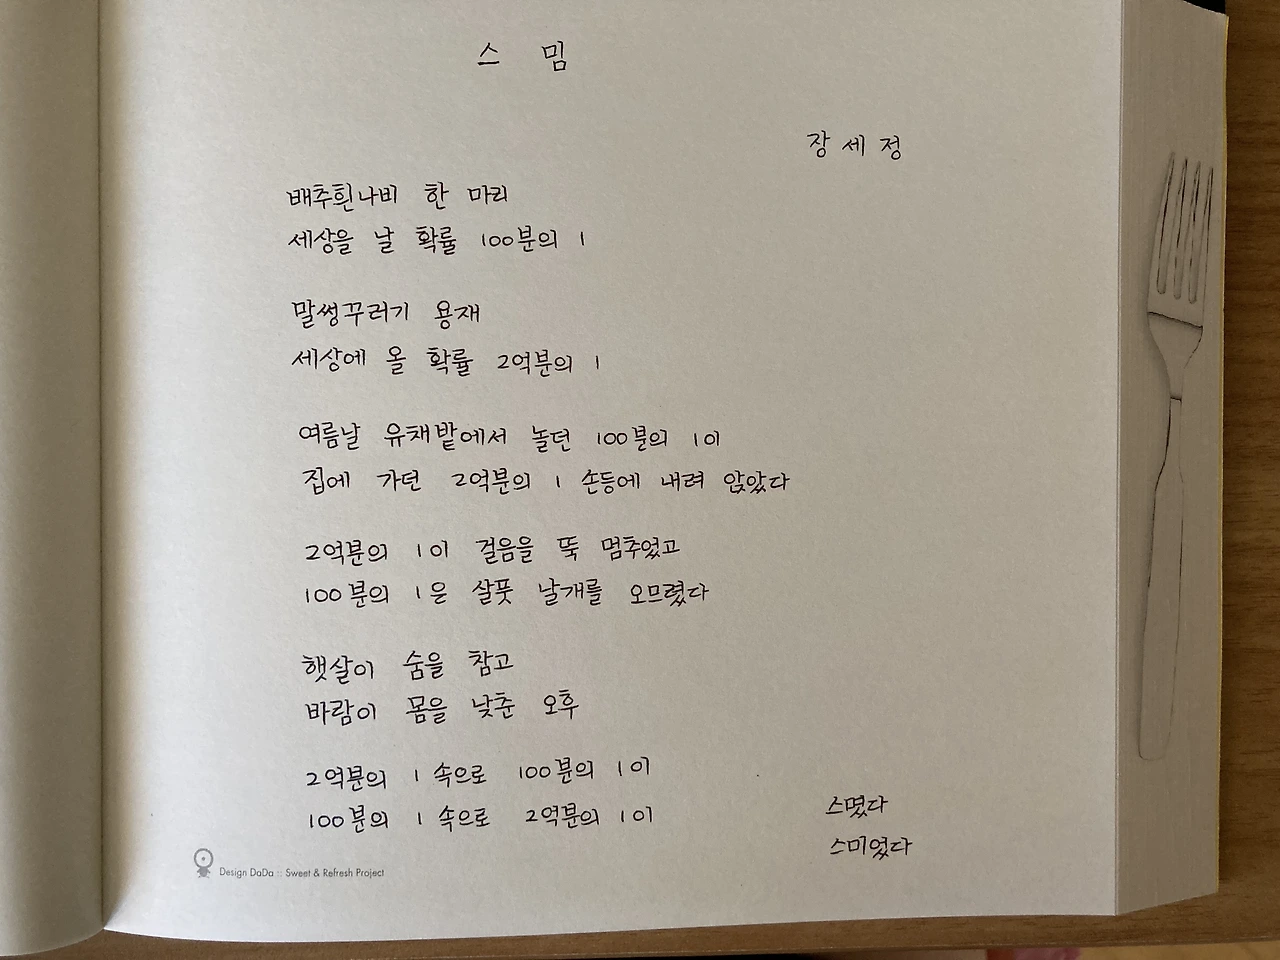 스 밈
장 세 정
배추흰나비 한 마리
세상을 날 확률 100분의 1
말썽꾸러기 용재
세상에 올 확률 2억분의 1
여름날 유채밭에서 놀던 100분의 1이
집에 가던 2억분의 1 손등에 내려 앉았다
2억분의 1이 걸음을 뚝 멈추었고
100분의 1은 살풋 날개를 오므렸다
햇살이 숨을 참고
바람이 몸을 낮춘 오후
2억분의 1 속으로 100분의 1이
100분의 1 속으로 2억분의 1이
스몄다
스미었다
Design DaDa :: Sweet & Refresh Project